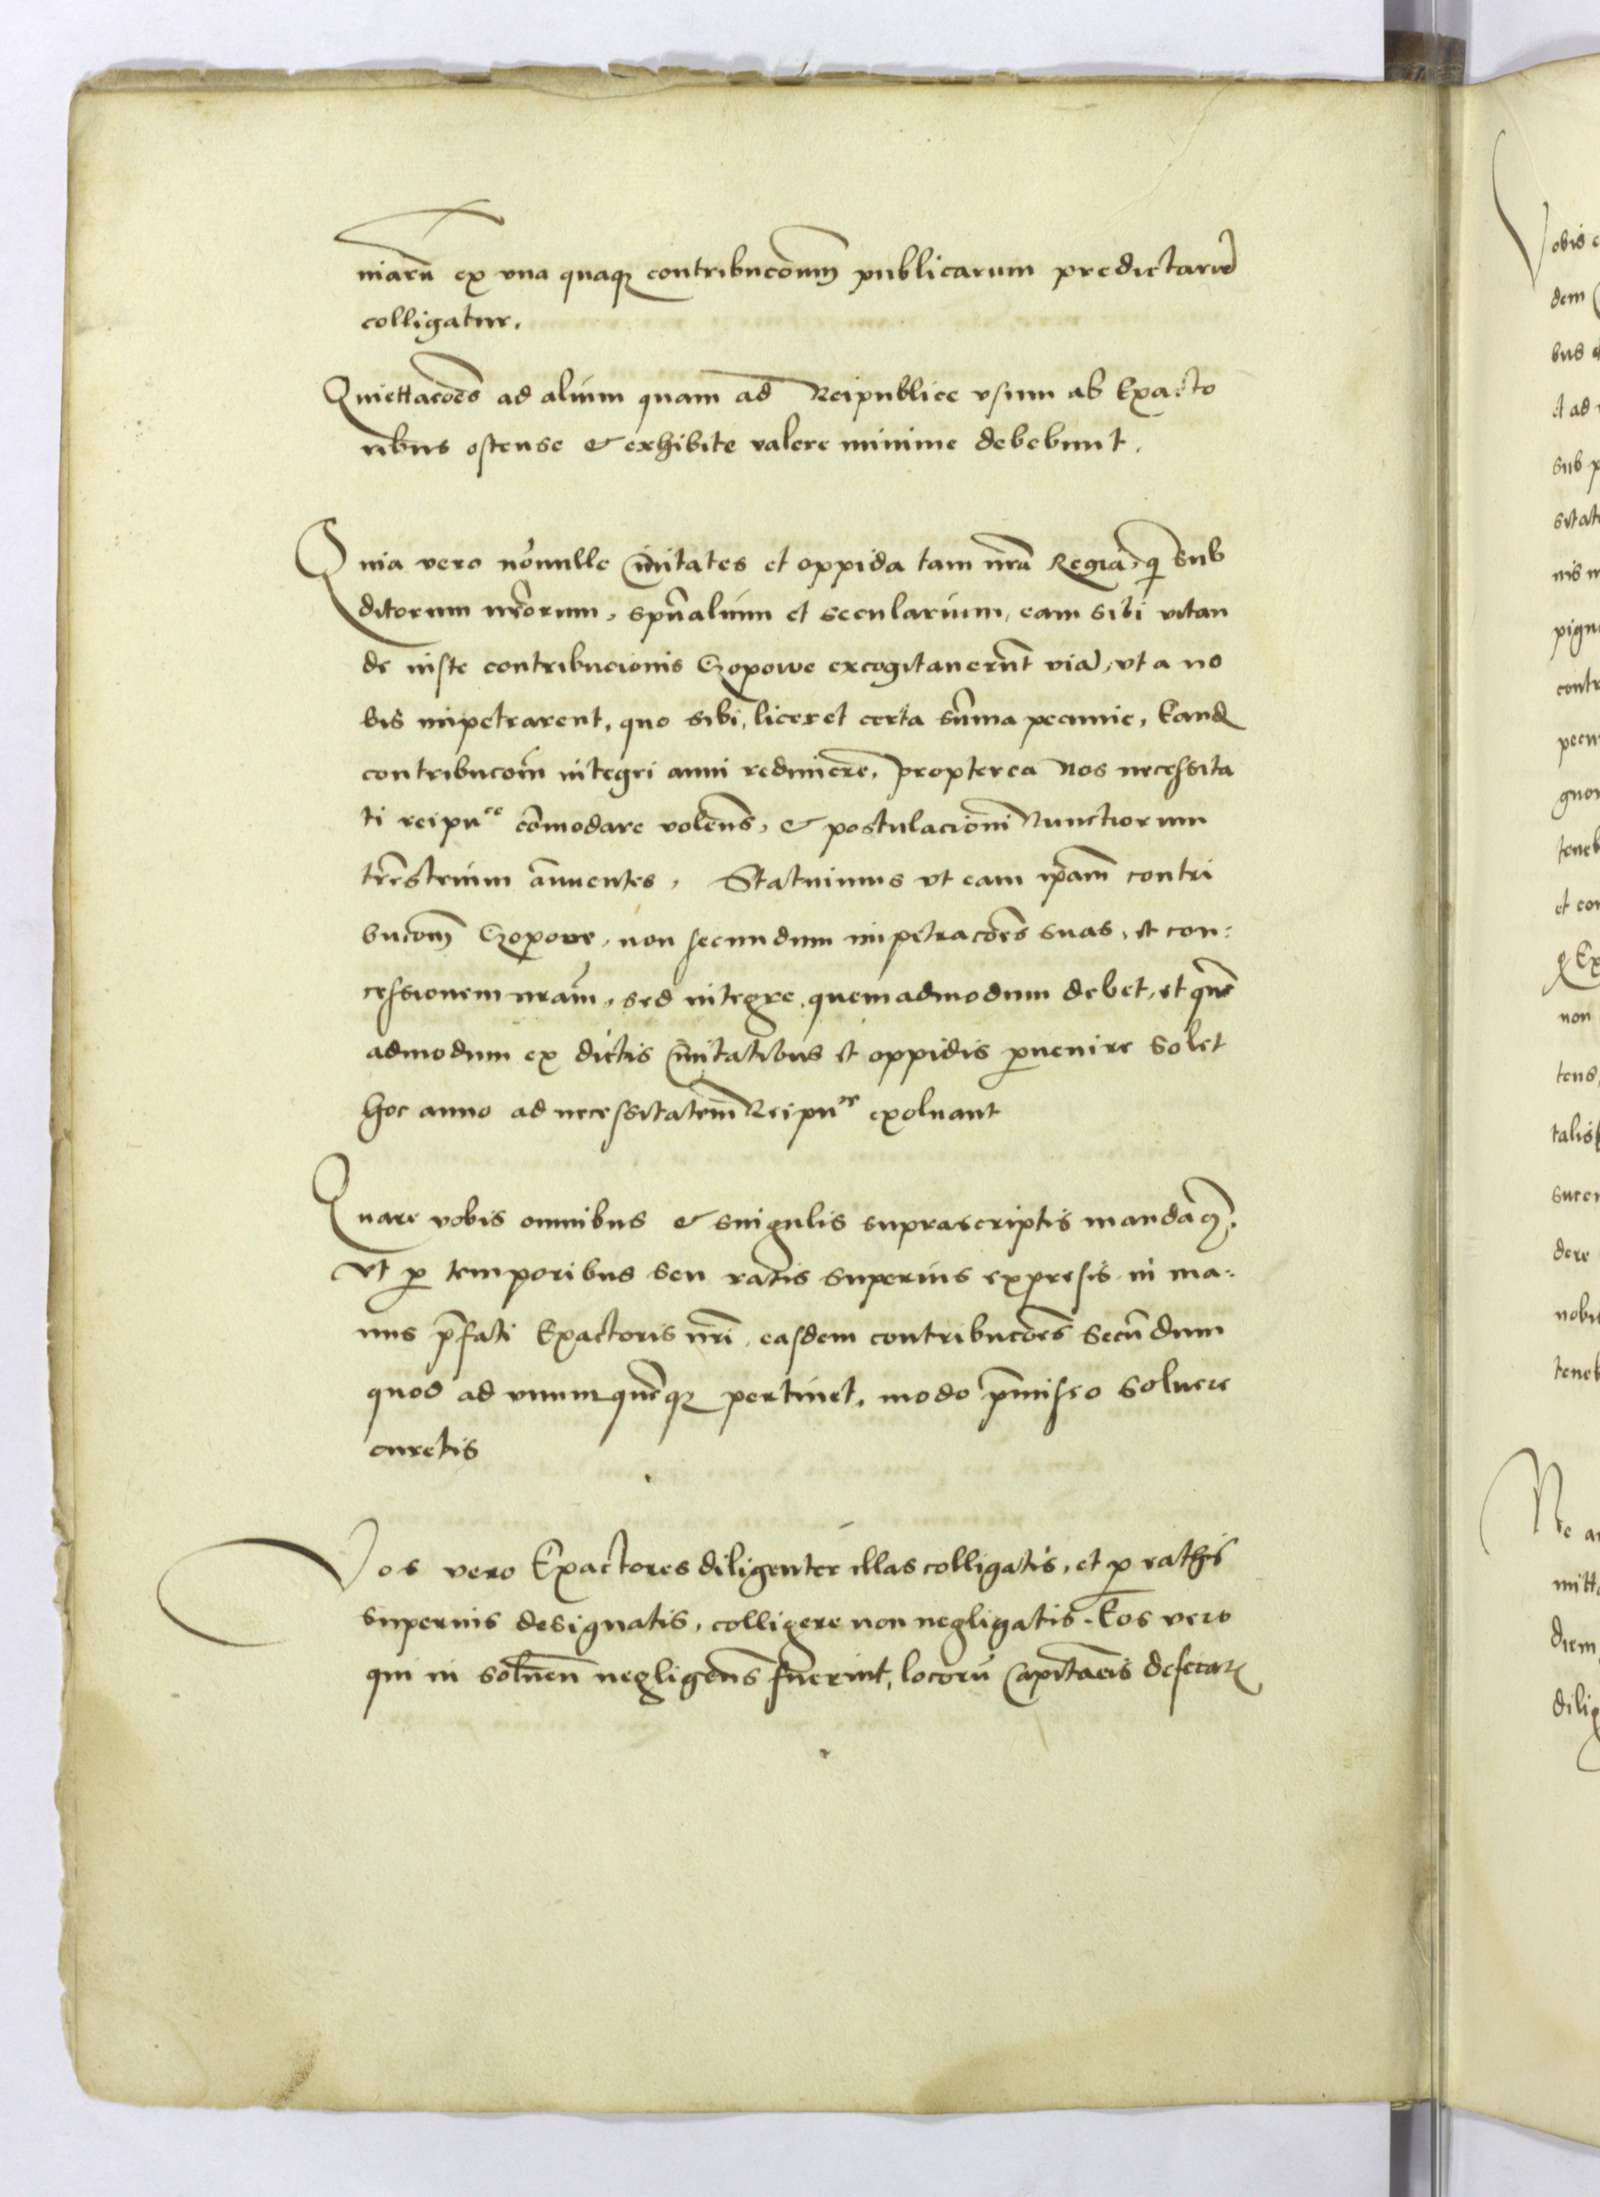 niarū ex vna quaq₃ contribucōnum publicarum predictarū
colligatur.
Quiettacōes ad alium quam ad Reipublice vsum ab Exacto
ribus ostense & exhibite valere minime debebunt.
Quia vero nōnulle Ciuitates et oppida tam nrā Regia, q̄ sub
ditorum nrōrum, spūalium et secularium, eam sibi vitan
de iuste contribucionis Czopowe excogitauerūt viā, vt a no
bis impetrarent, quo sibi, liceret certa sūma pecunie, Eand
contribucōm integri anni redimere, propterea Nos necessita
ti reipuce cōmodare volens, & postulacioni Nunctiorum
trrēstrium ānuentes, Statuimus vt eam ipam contri
bucōm Czopowe, non secundum impetracōes suas, et con:
cessionem nram, sed integre, quemadmodum debet, et quē
admodum ex dictis Ciuitatibus et oppidis puenire solet
hoc anno ad necessitatem Reipuce exoluant
Quare vobis omnibus & singulis suprascriptis mandam9,
Vt p temporibus seu ratis superius expresis in ma:
nus p̄fati Exactoris nrī, easdem contribucōes secūdum
quod ad vnumquēq₃ pertinet, modo p̄misso soluere
curetis
Vos vero Exactores diligenter illas colligatis, et p rathis
superius designatis, colligere non negligatis. Eos vero
qui in soluen negligens fuerint, locorū Capitaeis deferat
Vobis
dem
bus
et ad
sub
sitat
nis
pign
contr
pecu
gnor
teneb
et con
Ex
non
tens
talis
dere
nobi
teneb
Ne
mitt
diem
dilig